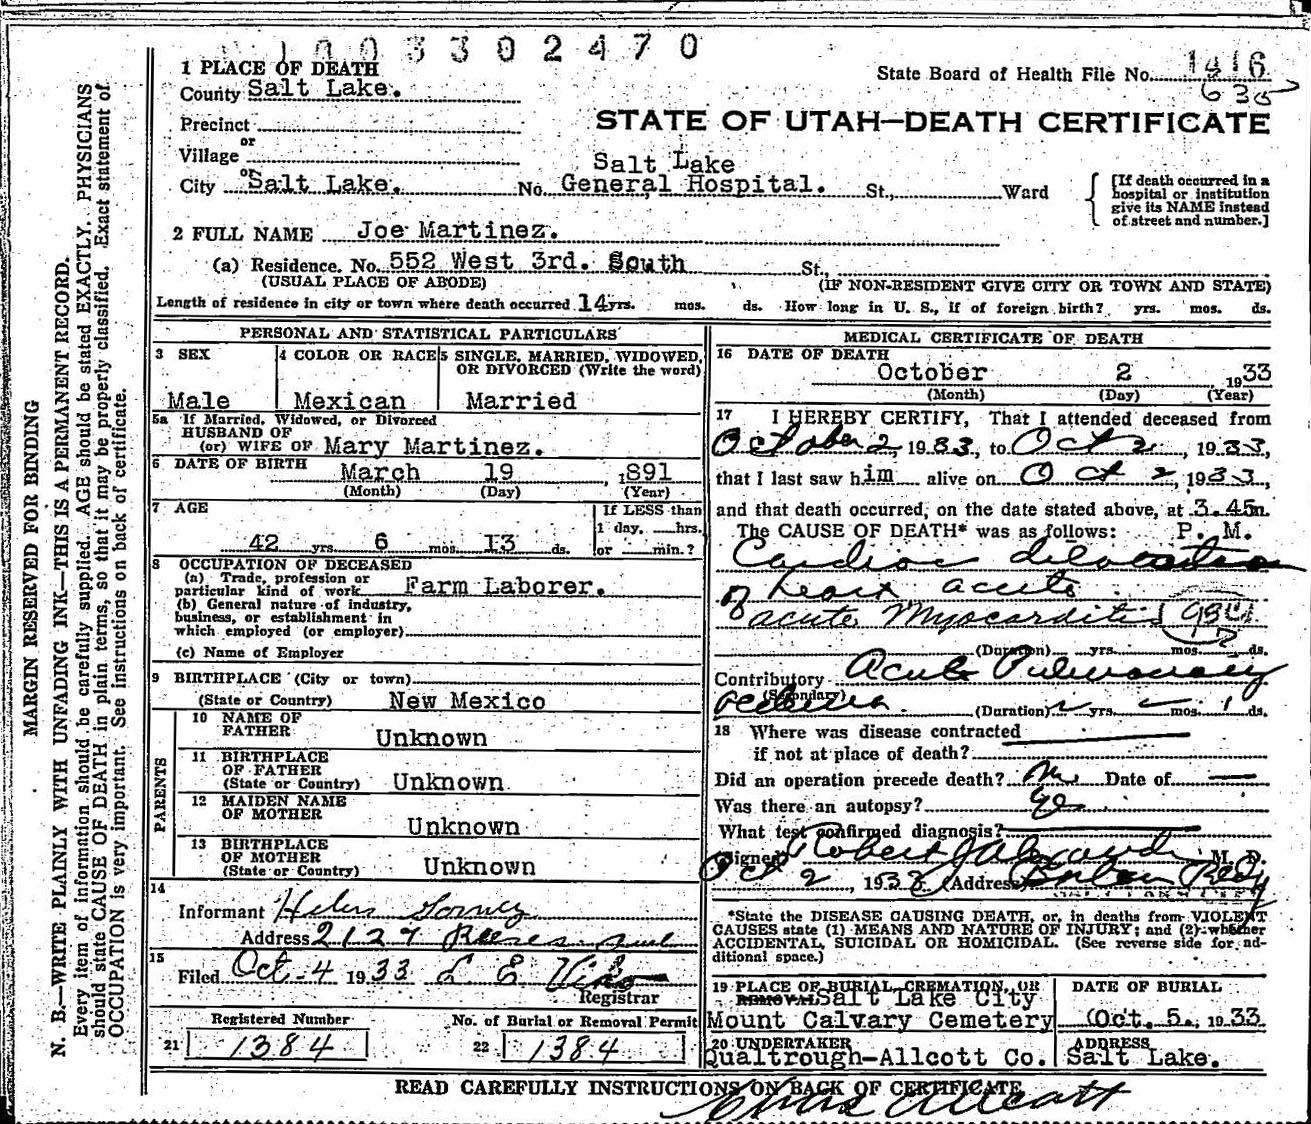 1003302470
1 PLACE OF DEATH
State Board of Health File No. 1416
County Salt Lake.
635
STATE OF UTAH—DEATH CERTIFICATE
Precinct
or
Village
Salt Lake
or
City Salt Lake. No. General Hospital. St., Ward
[If death occurred in a hospital or institution give its NAME instead of street and number.]
2 FULL NAME Joe Martinez.
(a) Residence. No. 552 West 3rd. South St.,
(USUAL PLACE OF ABODE) (IF NON-RESIDENT GIVE CITY OR TOWN AND STATE)
Length of residence in city or town where death occurred 14 yrs. mos. ds. How long in U. S., if of foreign birth? yrs. mos. ds.
PERSONAL AND STATISTICAL PARTICULARS
3 SEX
Male
4 COLOR OR RACE
Mexican
5 SINGLE, MARRIED, WIDOWED,
OR DIVORCED (Write the word)
Married
5a If Married, Widowed, or Divorced
HUSBAND OF
(or) WIFE OF Mary Martinez.
6 DATE OF BIRTH March 19 1891
(Month) (Day) (Year)
7 AGE
If LESS than
1 day, hrs.
42 yrs. 6 mos. 13 ds. or min.?
8 OCCUPATION OF DECEASED
(a) Trade, profession or
particular kind of work Farm Laborer.
(b) General nature of industry,
business, or establishment in
which employed (or employer)
(c) Name of Employer
9 BIRTHPLACE (City or town)
(State or Country) New Mexico
PARENTS
10 NAME OF
FATHER Unknown
11 BIRTHPLACE
OF FATHER
(State or Country) Unknown
12 MAIDEN NAME
OF MOTHER
Unknown
13 BIRTHPLACE
OF MOTHER
(State or Country) Unknown
14
Informant Helen Gomez
Address 2127
15
Filed Oct-4 1933 L E
Registrar
Registered Number
21 1384
No. of Burial or Removal Permit
22 1384
MEDICAL CERTIFICATE OF DEATH
16 DATE OF DEATH
October 2 1933
(Month) (Day) (Year)
17 I HEREBY CERTIFY, That I attended deceased from
October 2, 1933, to Oct 2, 1933,
that I last saw him alive on Oct 2, 1933,
and that death occurred, on the date stated above, at 3.45m.
The CAUSE OF DEATH* was as follows: P. M.
Cardiac
of heart acute
acute Myocarditis
(Duration) yrs. mos. ds.
Contributory Acute Pulmonary
(Secondary)
oedema (Duration) yrs. mos. 1 ds.
18 Where was disease contracted
if not at place of death?
Did an operation precede death? no Date of
Was there an autopsy?
What test confirmed diagnosis?
(Signed) Robert J Alexander M. D.
Oct 2, 1933 (Address)
*State the DISEASE CAUSING DEATH, or, in deaths from VIOLENT
CAUSES state (1) MEANS AND NATURE OF INJURY; and (2) whether
ACCIDENTAL, SUICIDAL OR HOMICIDAL. (See reverse side for ad-
ditional space.)
19 PLACE OF BURIAL, CREMATION, OR
REMOVAL Salt Lake City
Mount Calvary Cemetery
DATE OF BURIAL
Oct. 5., 1933
20 UNDERTAKER
Qualtrough-Allcott Co.
ADDRESS
Salt Lake.
READ CAREFULLY INSTRUCTIONS ON BACK OF CERTIFICATE
Chas Allcott
MARGIN RESERVED FOR BINDING
N. B.—WRITE PLAINLY WITH UNFADING INK—THIS IS A PERMANENT RECORD.
Every item of information should be carefully supplied. AGE should be stated EXACTLY. PHYSICIANS
should state CAUSE OF DEATH in plain terms, so that it may be properly classified. Exact statement of
OCCUPATION is very important. See instructions on back of certificate.